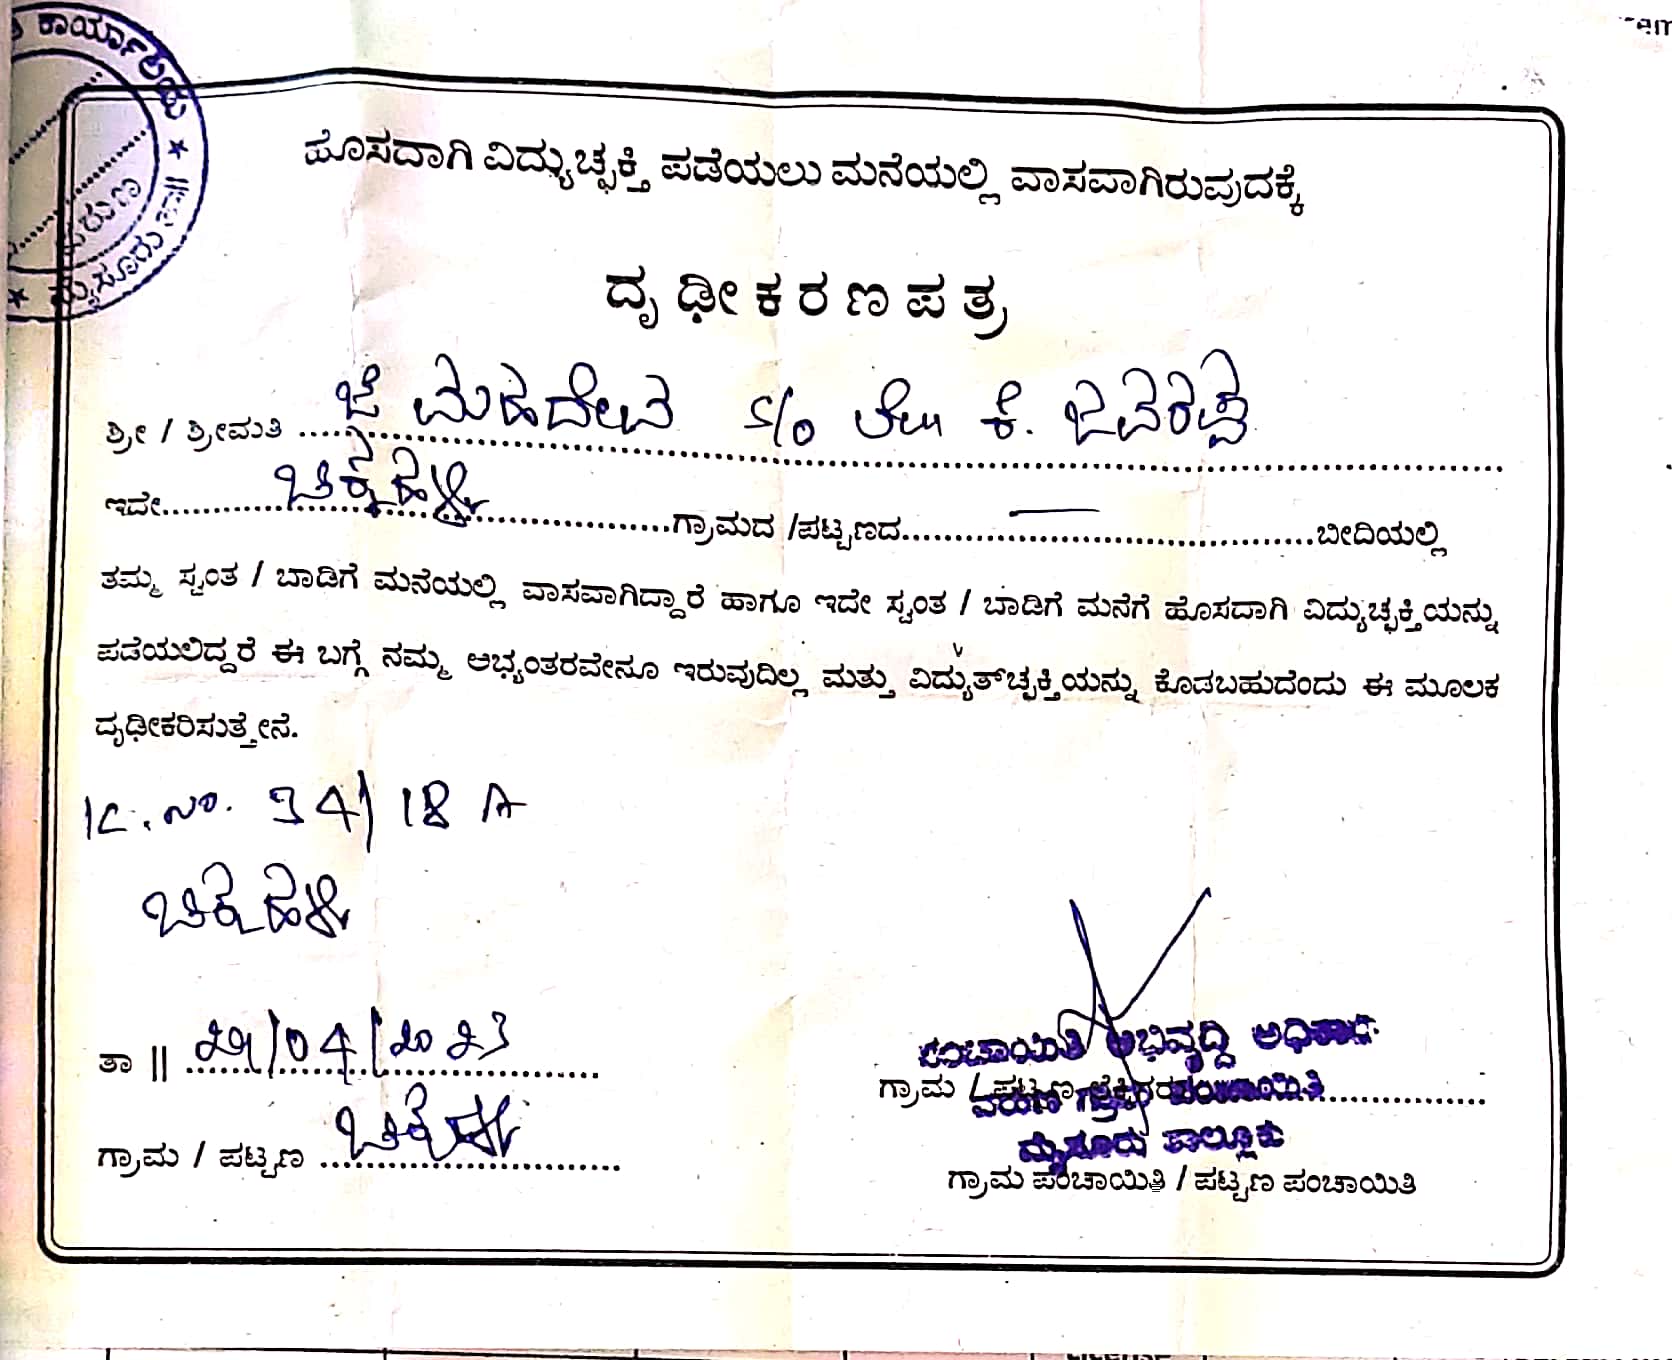 ಕಾರ್ಯಾಲಯ
ವರುಣ
ಮೈಸೂರು
ಹೊಸದಾಗಿ ವಿದ್ಯುಚ್ಛಕ್ತಿ ಪಡೆಯಲು ಮನೆಯಲ್ಲಿ ವಾಸವಾಗಿರುವುದಕ್ಕೆ
ದೃಢೀಕರಣಪತ್ರ
ಶ್ರೀ / ಶ್ರೀಮತಿ ಜೆ ಮಹದೇವ s/o ಲೇಟ್ ಕೆ. ಜವರಪ್ಪ
ಇದೇ ಚಿಕ್ಕಹಳ್ಳಿ ಗ್ರಾಮದ /ಪಟ್ಟಣದ — ಬೀದಿಯಲ್ಲಿ
ತಮ್ಮ ಸ್ವಂತ / ಬಾಡಿಗೆ ಮನೆಯಲ್ಲಿ ವಾಸವಾಗಿದ್ದಾರೆ ಹಾಗೂ ಇದೇ ಸ್ವಂತ / ಬಾಡಿಗೆ ಮನೆಗೆ ಹೊಸದಾಗಿ ವಿದ್ಯುಚ್ಛಕ್ತಿಯನ್ನು
ಪಡೆಯಲಿದ್ದರೆ ಈ ಬಗ್ಗೆ ನಮ್ಮ ಅಭ್ಯಂತರವೇನೂ ಇರುವುದಿಲ್ಲ ಮತ್ತು ವಿದ್ಯುತ್‌ಚ್ಛಕ್ತಿಯನ್ನು ಕೊಡಬಹುದೆಂದು ಈ ಮೂಲಕ
ದೃಢೀಕರಿಸುತ್ತೇನೆ.
K. No. 34/18 A
ಚಿಕ್ಕಹಳ್ಳಿ
ತಾ || 29/04/2023
ಪಂಚಾಯಿತಿ ಅಭಿವೃದ್ಧಿ ಅಧಿಕಾರಿ
ಗ್ರಾಮ / ಪಟ್ಟಣ
ವರುಣ ಗ್ರಾಮ ಪಂಚಾಯಿತಿ
ಮೈಸೂರು ತಾಲ್ಲೂಕು
ಗ್ರಾಮ / ಪಟ್ಟಣ ಚಿಕ್ಕಹಳ್ಳಿ
ಗ್ರಾಮ ಪಂಚಾಯಿತಿ / ಪಟ್ಟಣ ಪಂಚಾಯಿತಿ